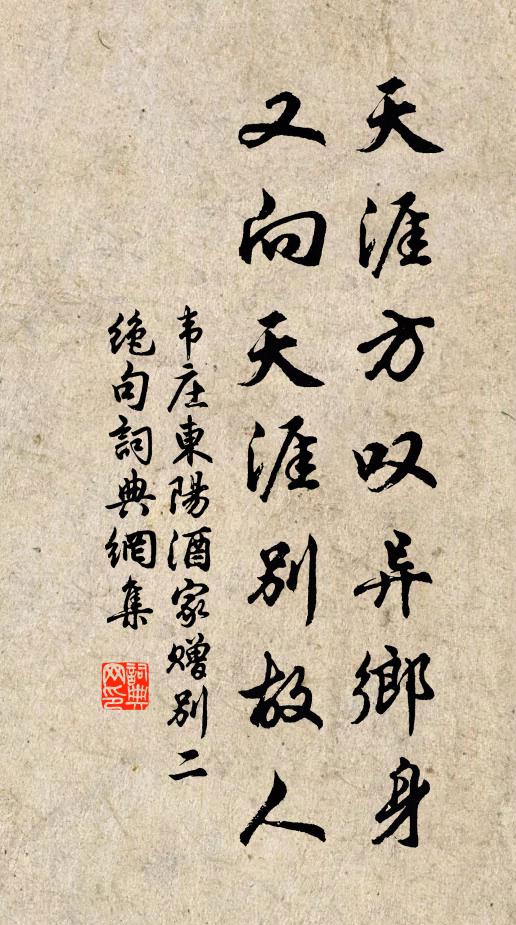 天涯方叹异鄉身
又向天涯别故人
韦庄東陽酒家赠别二
绝句詞典網集
詞典网印